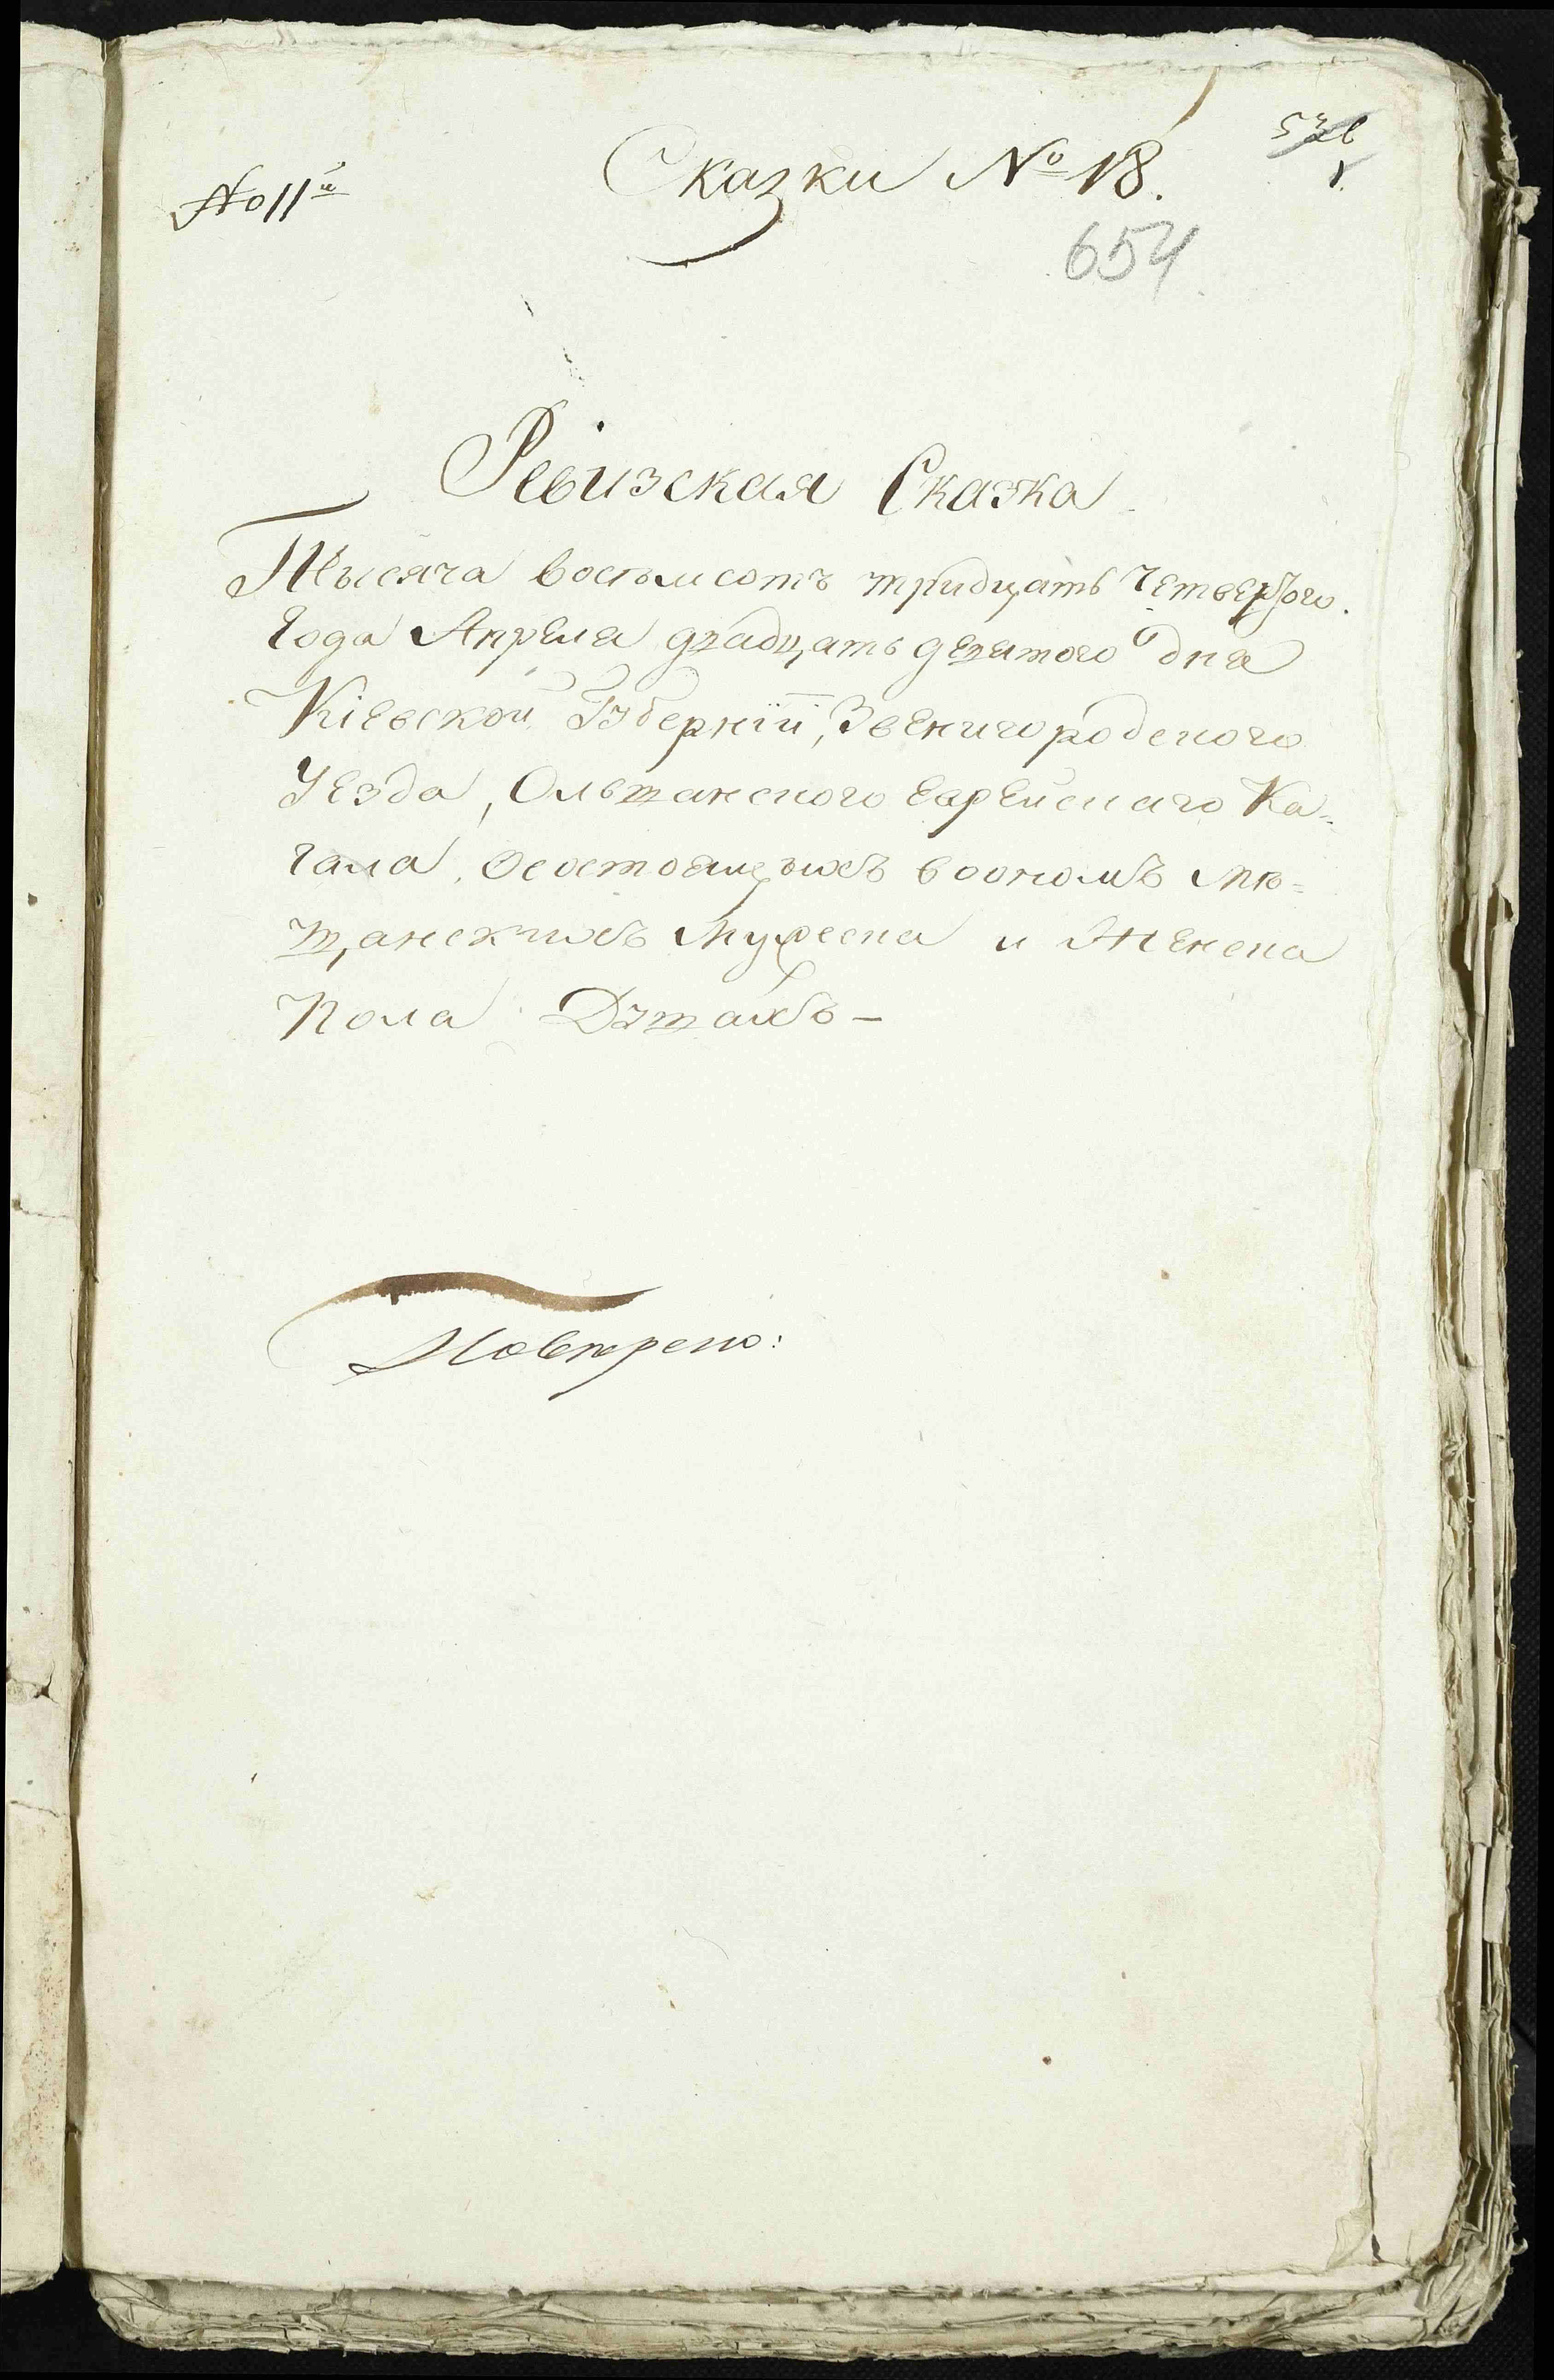 Сказки № 18.
№ 11й
1
654
Ревизская Сказка
Тысяча восьмсотъ тридцать четвертого
Года Апреля двадцать девятого дня
Кіевской Губерніи, Звенигородского
Уезда, Ольшанского Еврейскаго Ка=
гала, Осостоящихъ воономъ Мѣ=
щанскихъ Мужеска и Женска
Пола Душахъ —
Поверено: